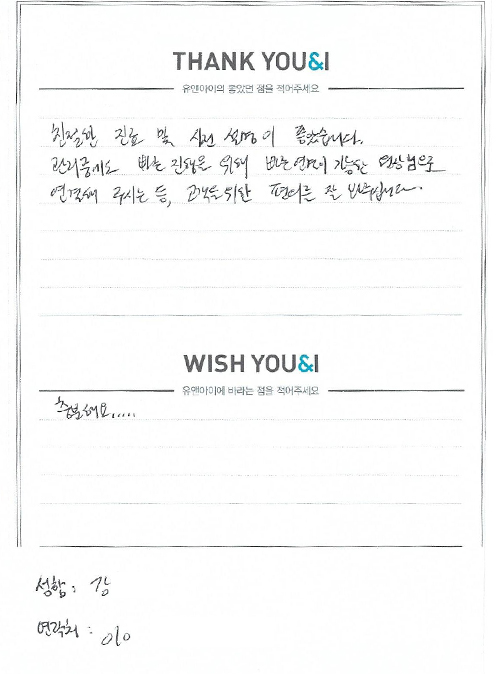 THANK YOU&I
유앤아이의 좋았던 점을 적어주세요
친절한 진료 및 시전 설명이 좋았습니다.
관리중에도 빠른 진행을 위해 빠른 연결이 가능한
연결해 주시는 등, 고객을 위한 편의를 잘 봐주십니다.
WISH YOU&I
유앤아이에 바라는 점을 적어주세요
충분해요.....
성함 : 강
연락처 : 010